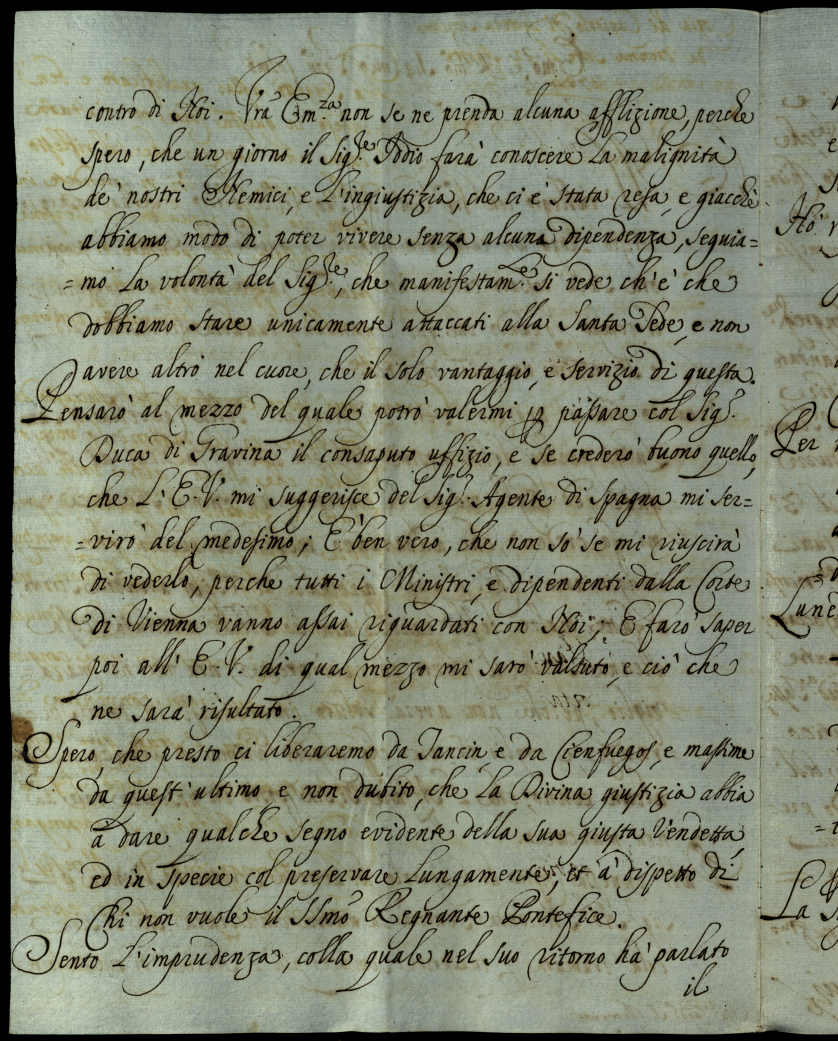 contro di Noi. Vrã Em.za non se ne prenda alcuna afflizione, perche
spero, che un giorno il Sig.re Iddio farà conoscere la malignità
de' nostri Nemici, e l'ingiustizia, che ci è stata resa, e giacchè
abbiamo modo di poter vivere senza alcuna dipendenza, seguia=
=mo la volontà del Sig.re, che manifestam.te si vede ch'è che
dobbiamo stare unicamente attaccati alla Santa Sede, e non
avere altro nel cuore, che il solo vantaggio, e servizio di questa.
Pensarò al mezzo del quale potrò valermi p passare col Sig.r
Duca di Gravina il consaputo uffizio, e se crederò buono quello,
che l'E.V. mi suggerisce del Sig.r Agente di Spagna mi ser=
=virò del medesimo; È ben vero, che non sò se mi riuscirà
di vederlo, perche tutti i Ministri, e dipendenti dalla Corte
di Vienna vanno assai riguardati con Noi; E farò saper
poi all'E.V. di qual mezzo mi sarò valsuto, e ciò che
ne sarà risultato.
Spero, che presto ci liberaremo da Tancin, e da Cienfuegos, e massime
da quest'ultimo e non dubito, che la Divina giustizia abbia
à dare qualche segno evidente della sua giusta Vendetta,
ed in specie col preservare lungamente, et à dispetto di
Chi non vuole il SSmõ Regnante Pontefice.
Sento l'imprudenza, colla quale nel suo ritorno hà parlato
il
Hò
Per
Lune
La